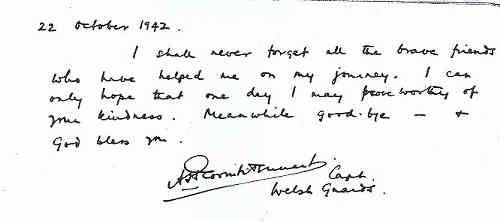 22 October 1942.
I shall never forget all the brave friends
who have helped me on my journey. I can
only hope that one day I may prove worthy of
your kindness. Meanwhile good-bye — &
God bless you.
Capt.
Welsh Guards.